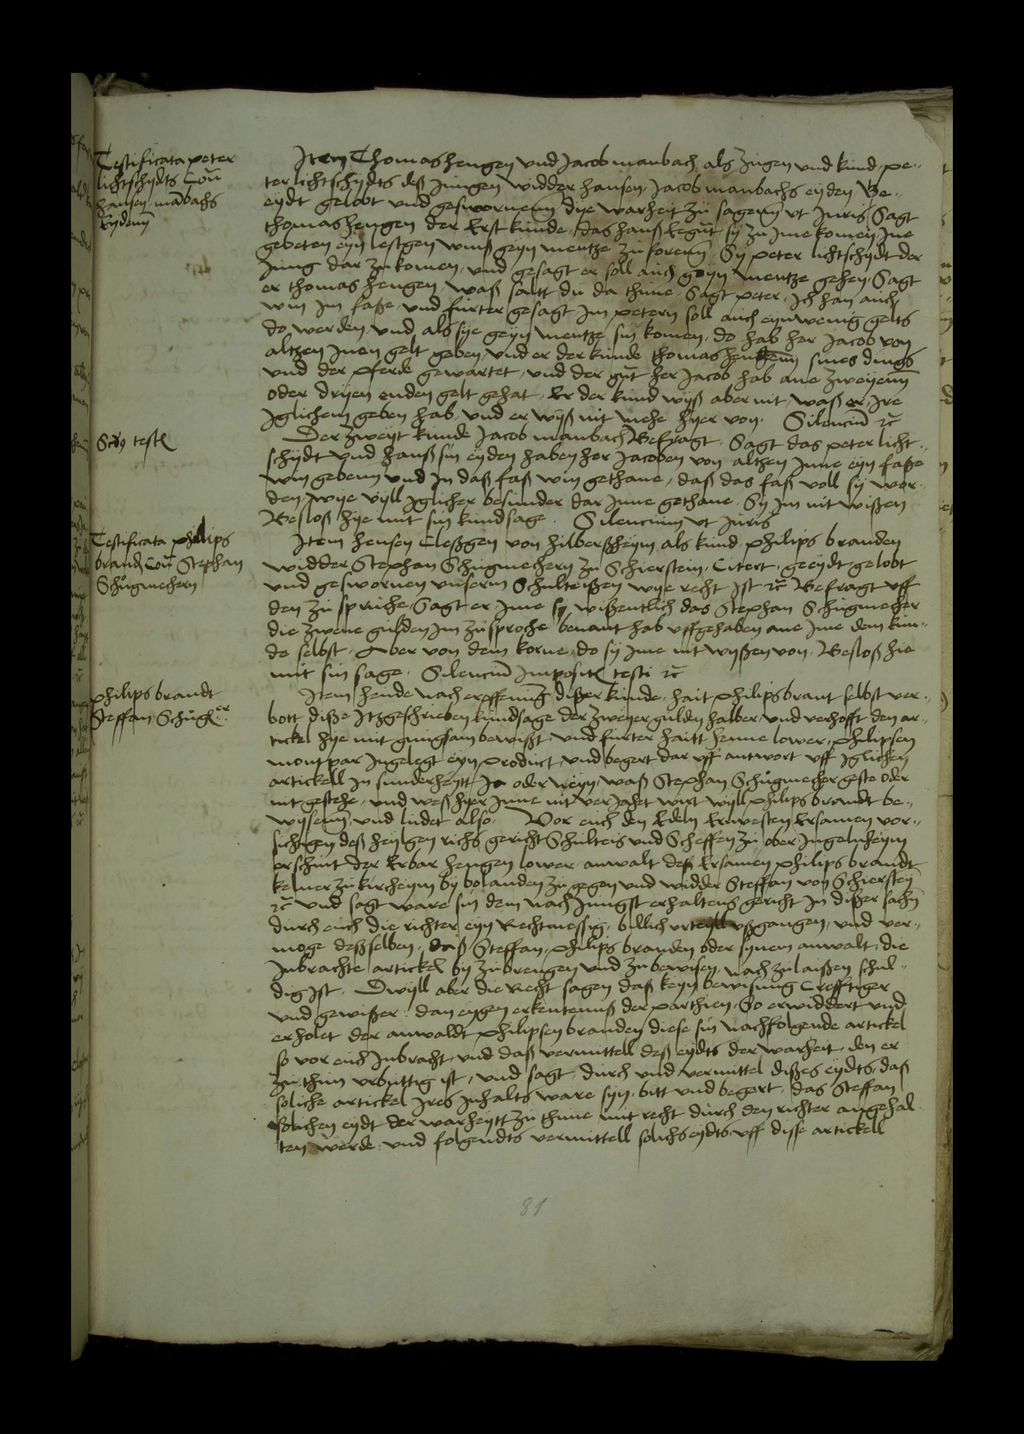 Testificata peter
lichtschÿdts Cont
hansen manbachs
Eydenn
Item Thomashengen vnd Jacob manbach als zugen vnd kund pe-
ter lichtschÿdts deß Jungen widder hansen Jacob manbachs eyden Be-
eydt gelobt vnd geswornenn dye warheit zu sagenn vt Juris Sagt
thomashengen der Erst kunde, das hanß sÿ zu Ime komen Ine
gebeten eyn lestgen wins geyn mentze zu forenn Sy peter lichtschÿdt der
Jung dar zu komen, vnd gesagt er soll auch geyn mentze gehen, Sagt
er thomas hengen, waß saltt du da thune, Sagt peter, Ich han auch
win Im faße, vnd furter gesagt Im petern soll auch eyn wenig gelts
do werden, vnd als sye geyn mentze sin komen, do hab her Jacob von
altzen Inen gelt geben vnd er der kunde thomas sines dings
vnd der pferde gewartet, vnd der gut her Jacob hab ane zweyenn
oder dryen enden gelt gehat, Er der kund wyß aber nit waß er Ire
Iglichem geben hab, vnd er wyß nit mehe hyer von. Silencium etc
Scds testis
Der zweyt kunde Jacob manbach Befragt, Sagt das peter licht-
schÿdt vnd hanß sin eyden haben her Jacoben von altzen Inne eyn faße
win gebenn vnd In daß faß win gethane, daß das faß voll sy wor-
den, wye vyll Iglicher besunder dar Inne gethane, Sy Im nit wißen
Besloß hye mit sin kundsage. Silencium vt Juris
Testificata philips
brand Cont Stephan
Schugmechern
Item hensen Cleßgen von hilberßheym als kund philips branden
widder Stephan Schugmechern zu Schierstein, Citert, geeydt gelobt
vnd geswornen vnserm Schulteißen wye recht Ist etc Befragt vff
den zu spruche, Sagt er Ime sy wißentlich das Stephan Schugmecher
die zwene gulden Im zusproche benant hab vffgehaben ane Ime dem kun-
de selbst, Aber von dem korne, do sy Ime nit wyßen von, Besloß hie
mit sin sage. Silencium Impositum testi etc
philips brandt
Steffan Schugker
Item hende nach eroffenung dißer kunde, hait philips brant selbst ver-
bott diße Itzgeschrieben kundsage der zweyer gulden halber, vnd verhofft den ar-
tickel hye mit gnugsam bewißt, vnd furter haitt henne lower, philipsen
montpar Ingelegt eyn product, vnd begert dar vff antwort vff Iglichen
artickell In sunderheytt Ja oder neyn, waß Stephan Schugmecher geste oder
nit gestehe, vnd weß hyer Inne nit verJahet wirt wyll philips brandt be-
wysenn, vnd ludet also. Vor euch den Edeln Ernvesten Ersamen vor-
sichtigen deß heylgen richs gericht Schulteis vnd Scheffen zu ober Ingelnheym
erschint der Erbar hengen lower, anwalt deß Ersamen philips brandt
kelner zu kircheym by bolanden zu gegen vnd widder Steffan von Schierstein
etc vnd sagt ware sin dem nach Jungst erhaltens gericht In dißer sachen
durch euch die richter eyn Rechtmessig, billich vrteyll vßgangen, vnd ver-
moge deßselben, daß Steffan, philips branden oder synem anwalt, die
Inbrachte artickel by zu brengen vnd zu bewisen, nach zulaißen schul-
dig Ist, Dwyll aber die Recht sagen daß keyn bewisung Crefftiger
vnd gewißer, dan eygen erkentenuß der parthien, So erwiddert vnd
erholet der anwaldt philipsen branden diese sin nachfolgende artickel
so vor euch Inbracht, vnd daß vermittell deß eydts der warheit, den er
zu thun vrbuttig ist, vnd sagt, durch vnd vermittel dißes eydts, daß
soliche artickel Ires Inhalts ware syn, bitt vnd begert, das Steffan
solichen eydt der warheytt zu thune mit recht durch den richter angehal-
ten werde, vnd folgendts vermittell solichs eydts vff disse artickell
81